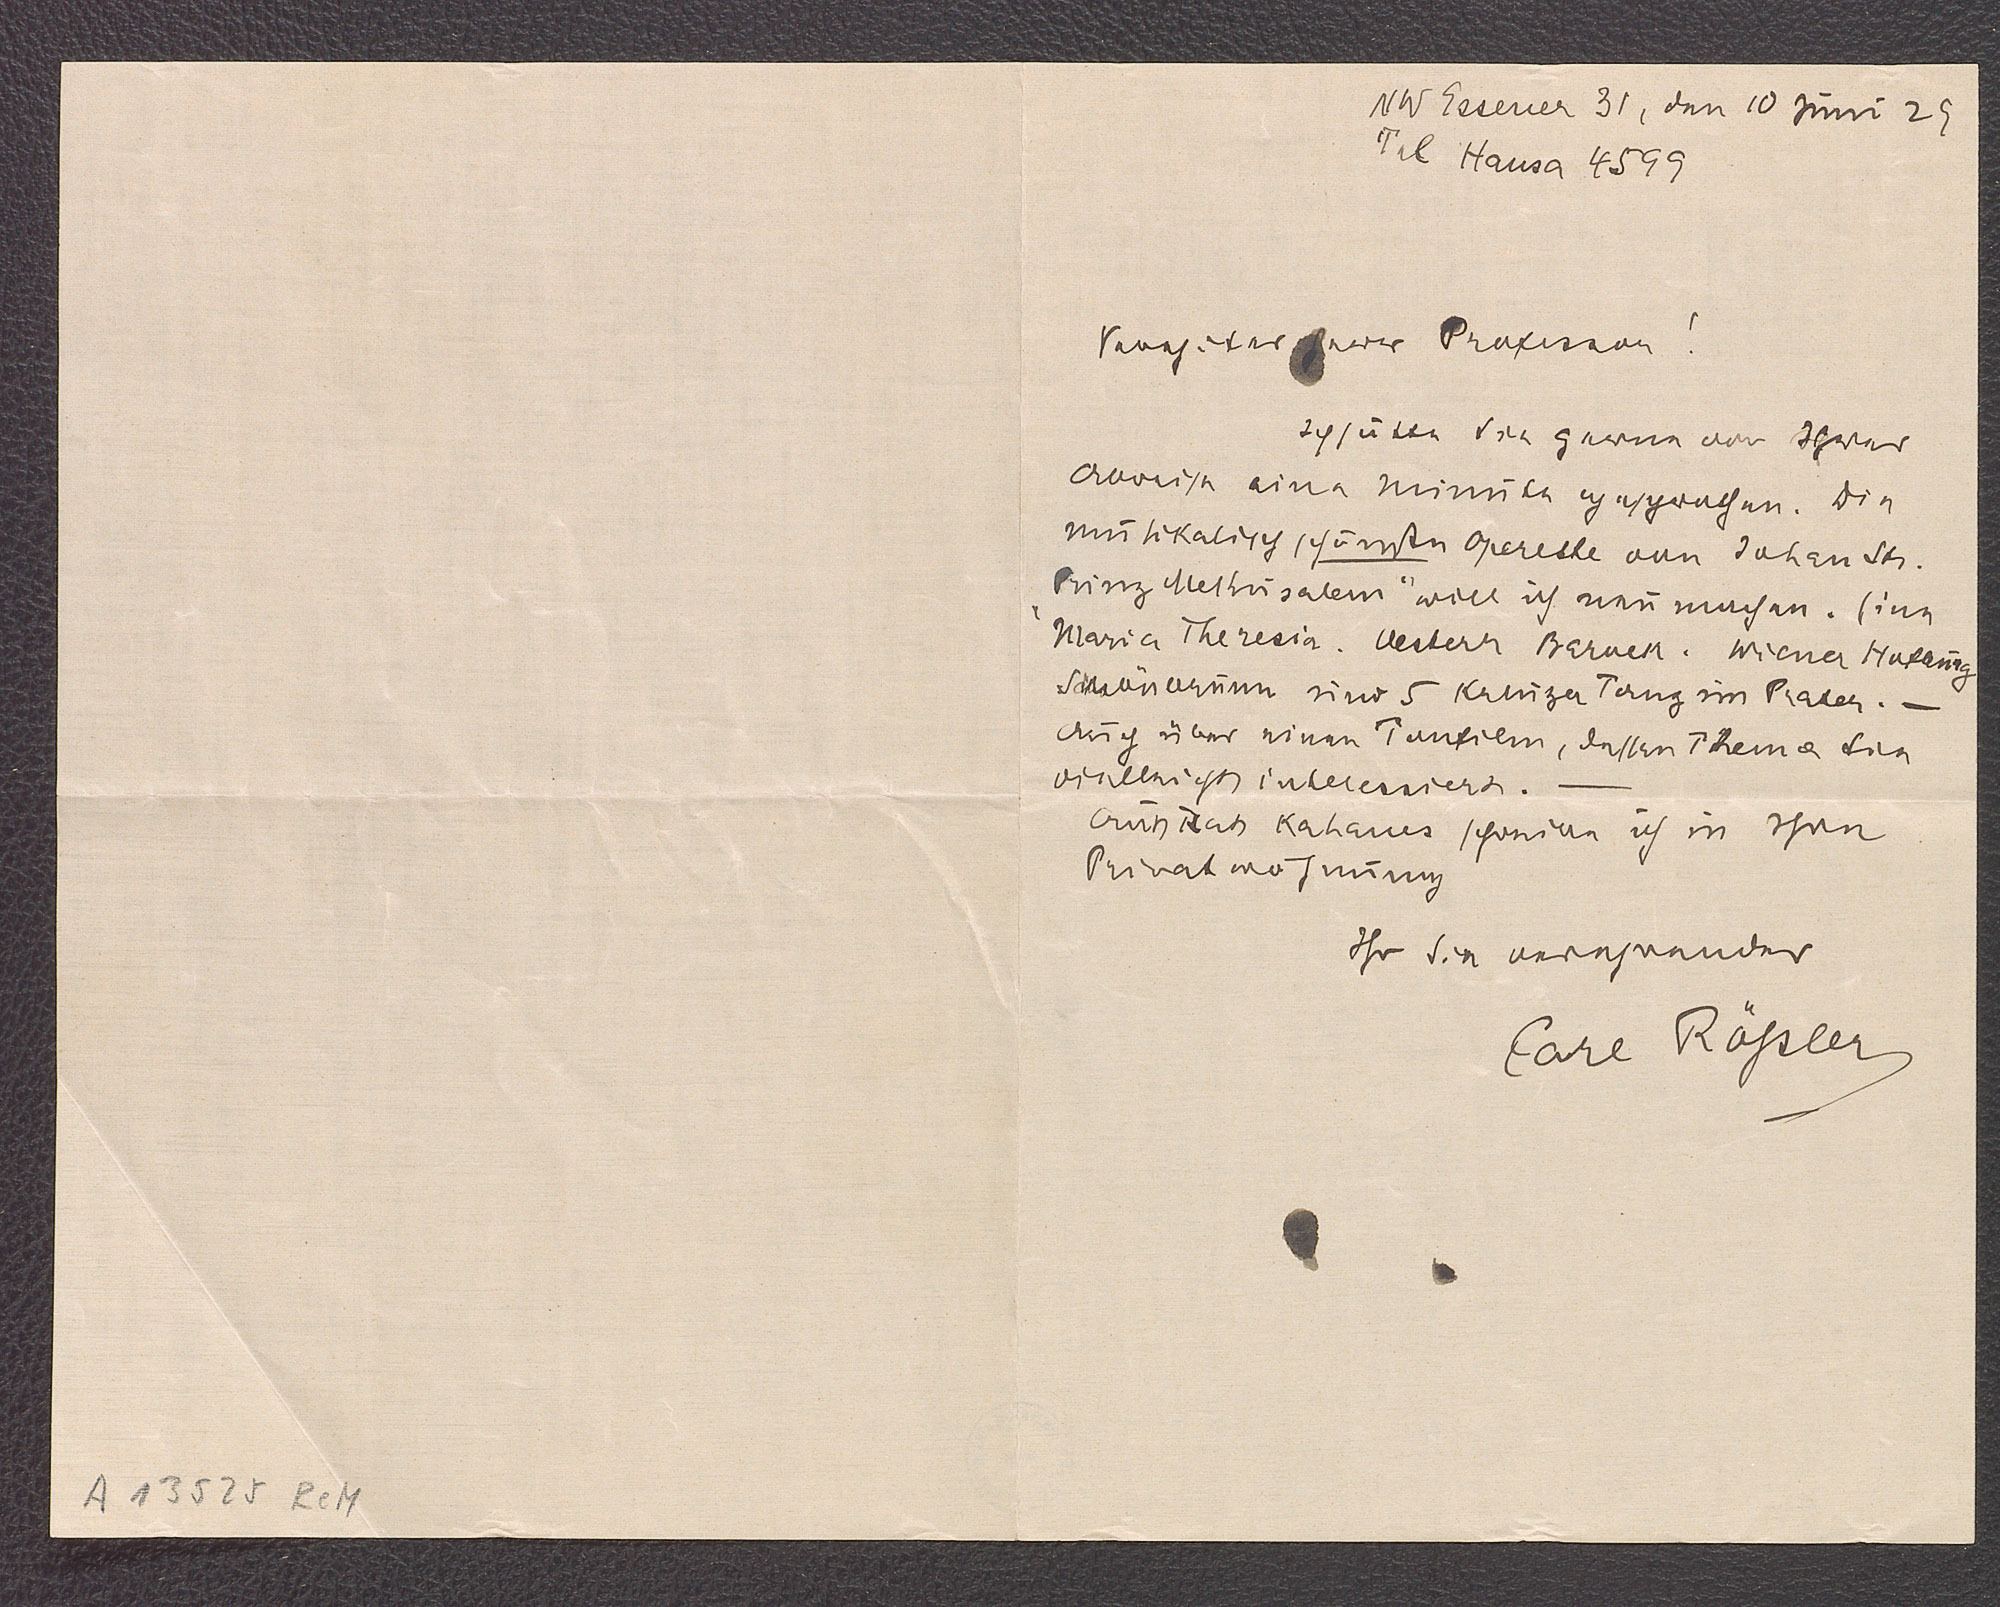 NW Essener 31, den 10 Juni 29
Tel Hansa 4599
Verehrter Herr Professor!
Ich hätte Sie gerne vor Ihrer
Abreise eine Minute gesprochen. Die
musikalisch schönste Operette von Johan Str.
„Prinz Methusalem" will ich neu machen.
Maria Theresia. Oesterr Barock. Wiener Hofburg
Schönbrunn und 5 Kreuzer Tanz im Prater. —
Auch über einen Tonfilm, dessen Thema Sie
vielleicht interessiert. —
Auf Rat Kahanes schreibe ich in Ihre
Privatwohnung
Ihr Sie verehrender
Carl Rößler
A 13525 ReM